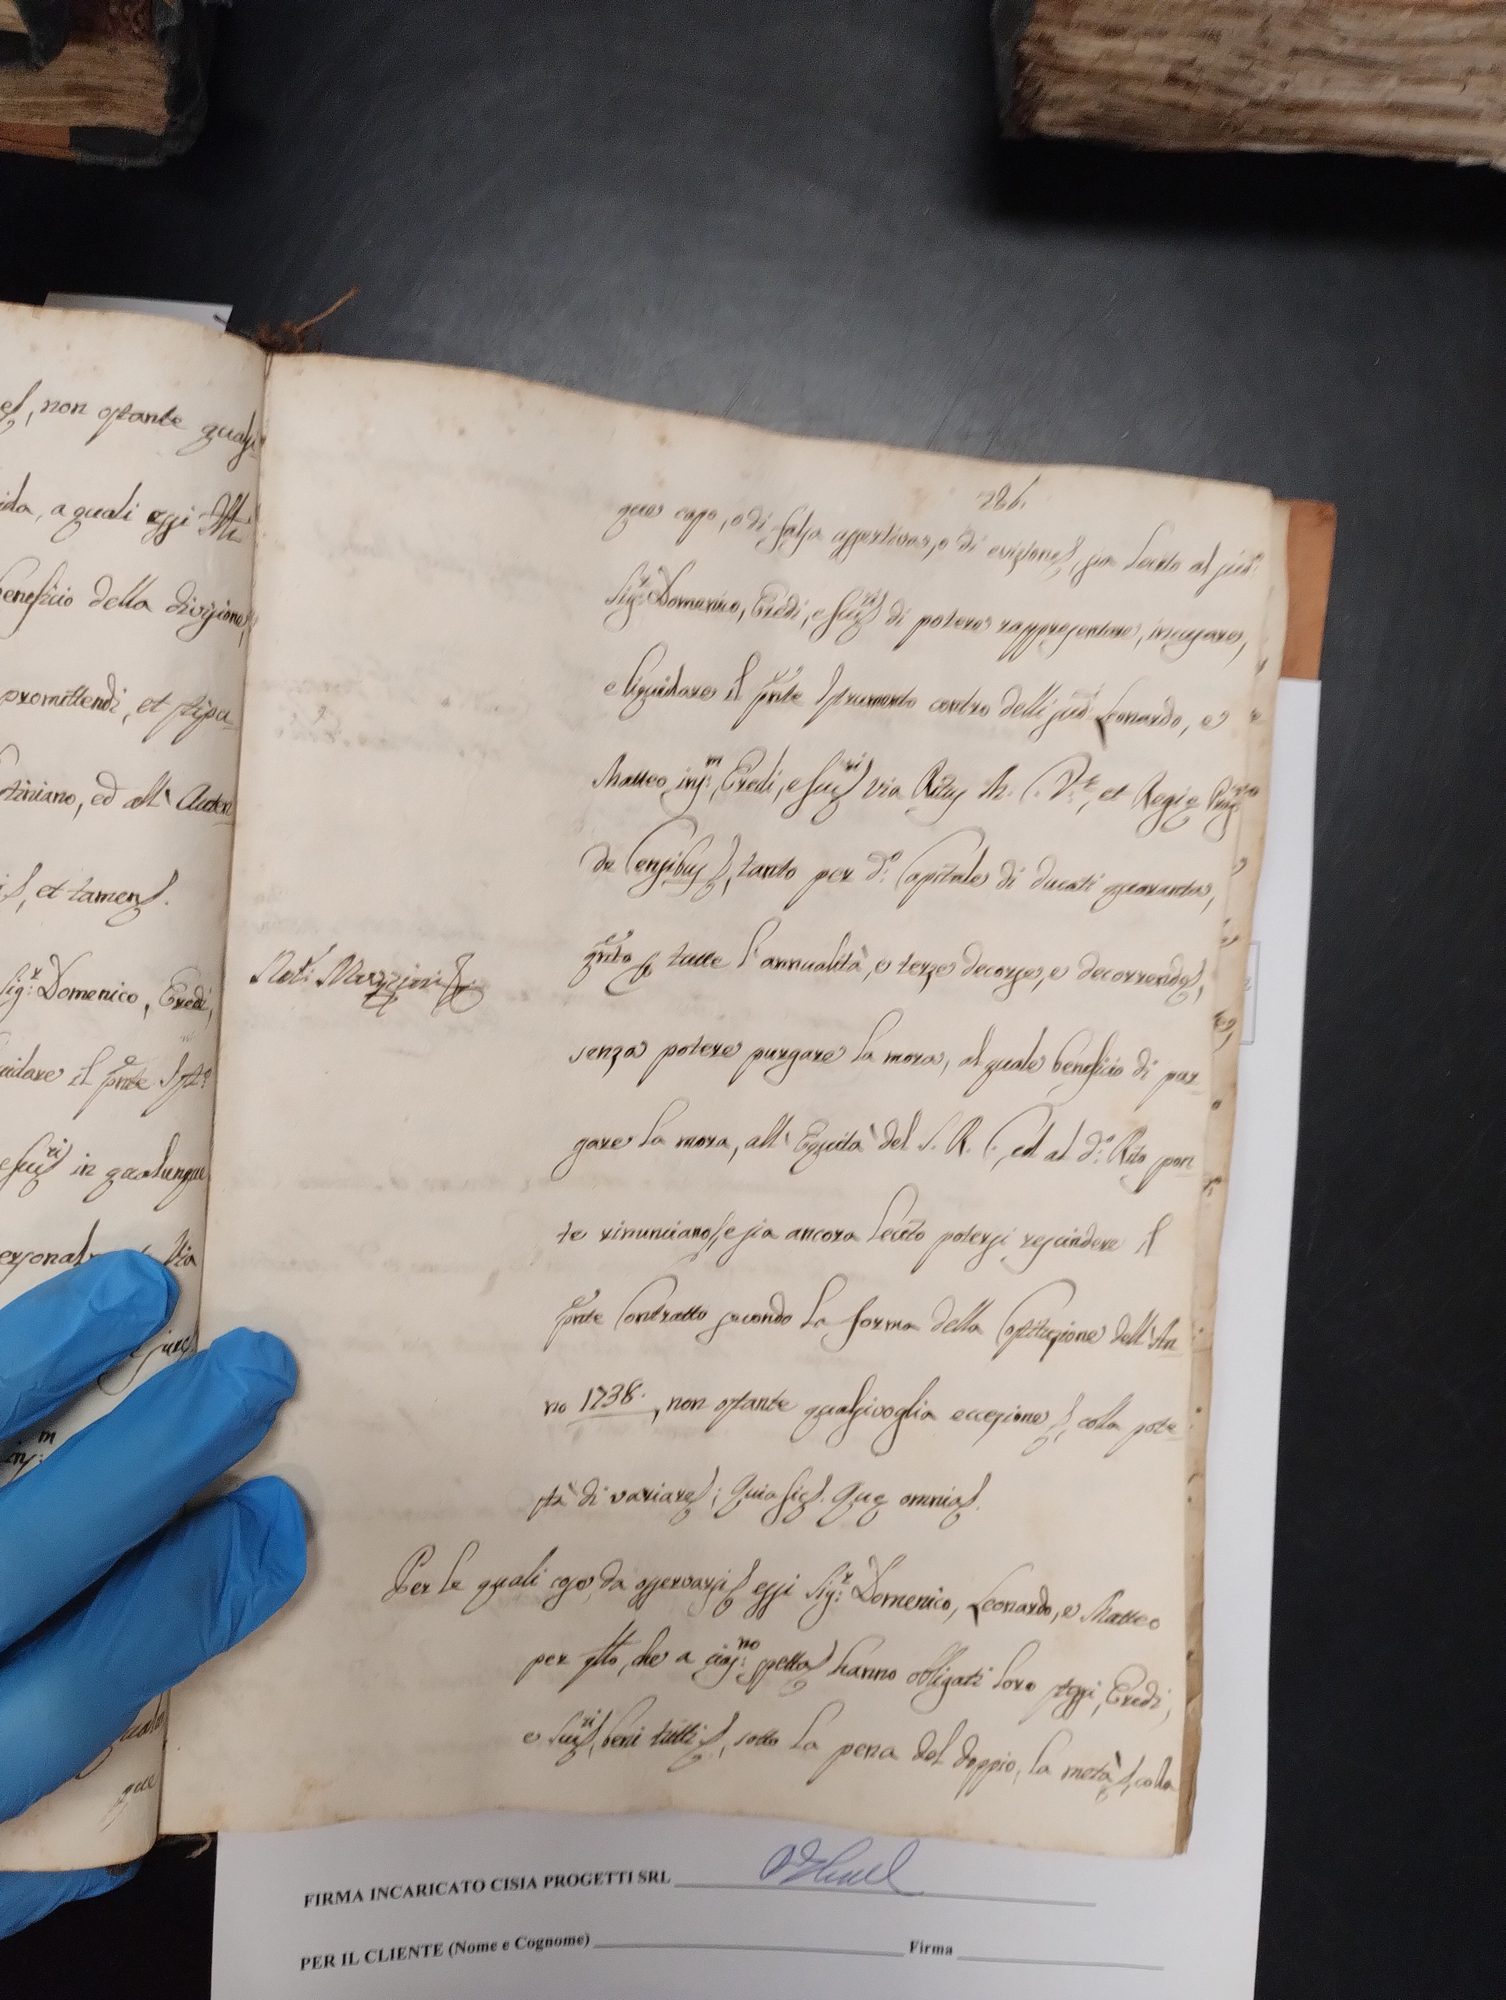 es, non ostante qualsi-
ida, a quali essi Mti
beneficio della divisione,
promittendi, et stipu-
stiniano, ed all' Auten
et tamen
Sig.r Domenico, Eredi,
uidare il pnte Istr.o
e suc.ri in qualunque
Via
que
226.
que capo, o di falsa assertiva, o di evizione, sia lecito al sud.o
Sig.r Domenico, Eredi, e suc.ri di potere rappresentare, incusare,
e liquidare il pnte Istrumento contro delli sud.i Leonardo, e
Matteo ins.m, Eredi, e suc.ri via Ritus M. C. V.e, et Regie Prag.
de Censibus, tanto per d.o Capitale di ducati quaranta,
q.nto p tutte l' annualità, e terze decorse, e decorrende,
Not.r Mazzioni
senza potere purgare la mora, al quale beneficio di pur-
gare la mora, all' Equità del S. R. C., ed al d.o Rito pon-
te rinunciano, e sia ancora lecito potersi rescindere il
pnte Contratto secondo la forma della Costituzione dell' An-
no 1738., non ostante qualsivoglia eccezione, colla pote-
stà di variare; Quia sic. Que omnia.
Per le quali cose da osservarsi essi Sig.r Domenico, Leonardo, e Matteo
per q.llo, che a cias.no spetta hanno obligati loro stessi, Eredi,
e suc.ri, beni tutti, sotto la pena del doppio, la metà, colla
FIRMA INCARICATO CISIA PROGETTI SRL
PER IL CLIENTE (Nome e Cognome) Firma